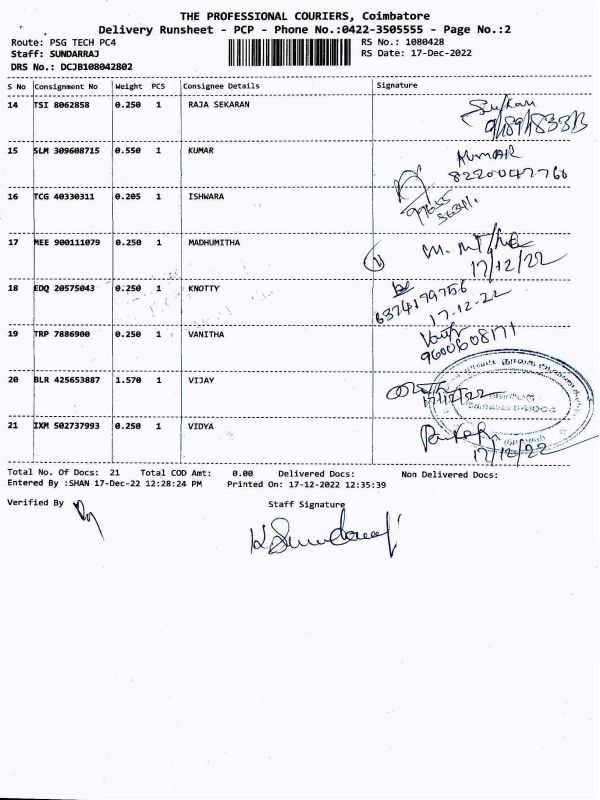 THE PROFESSIONAL COURIERS, Coimbatore
Delivery Runsheet - PCP - Phone No.:0422-3505555 - Page No.:2
Route: PSG TECH PC4
RS No.: 1080428
Staff: SUNDARRAJ
RS Date: 17-Dec-2022
DRS No.: DCJB108042802
S No Consignment No Weight PCS Consignee Details Signature
14 TSI 8062858 0.250 1 RAJA SEKARAN
15 SLM 309608715 0.550 1 KUMAR KUMAR
8220047760
16 TCG 40330311 0.205 1 ISHWARA
17 MEE 900111079 0.250 1 MADHUMITHA
17/12/22
18 EDQ 20575043 0.250 1 KNOTTY
6374179756
17.12.22
19 TRP 7886900 0.250 1 VANITHA
9600608171
20 BLR 425653887 1.570 1 VIJAY
17/12/22
21 IXM 502737993 0.250 1 VIDYA
17/12/22
Total No. Of Docs: 21 Total COD Amt: 0.00 Delivered Docs: Non Delivered Docs:
Entered By :SHAN 17-Dec-22 12:28:24 PM Printed On: 17-12-2022 12:35:39
Verified By Staff Signature
K Sundarraj